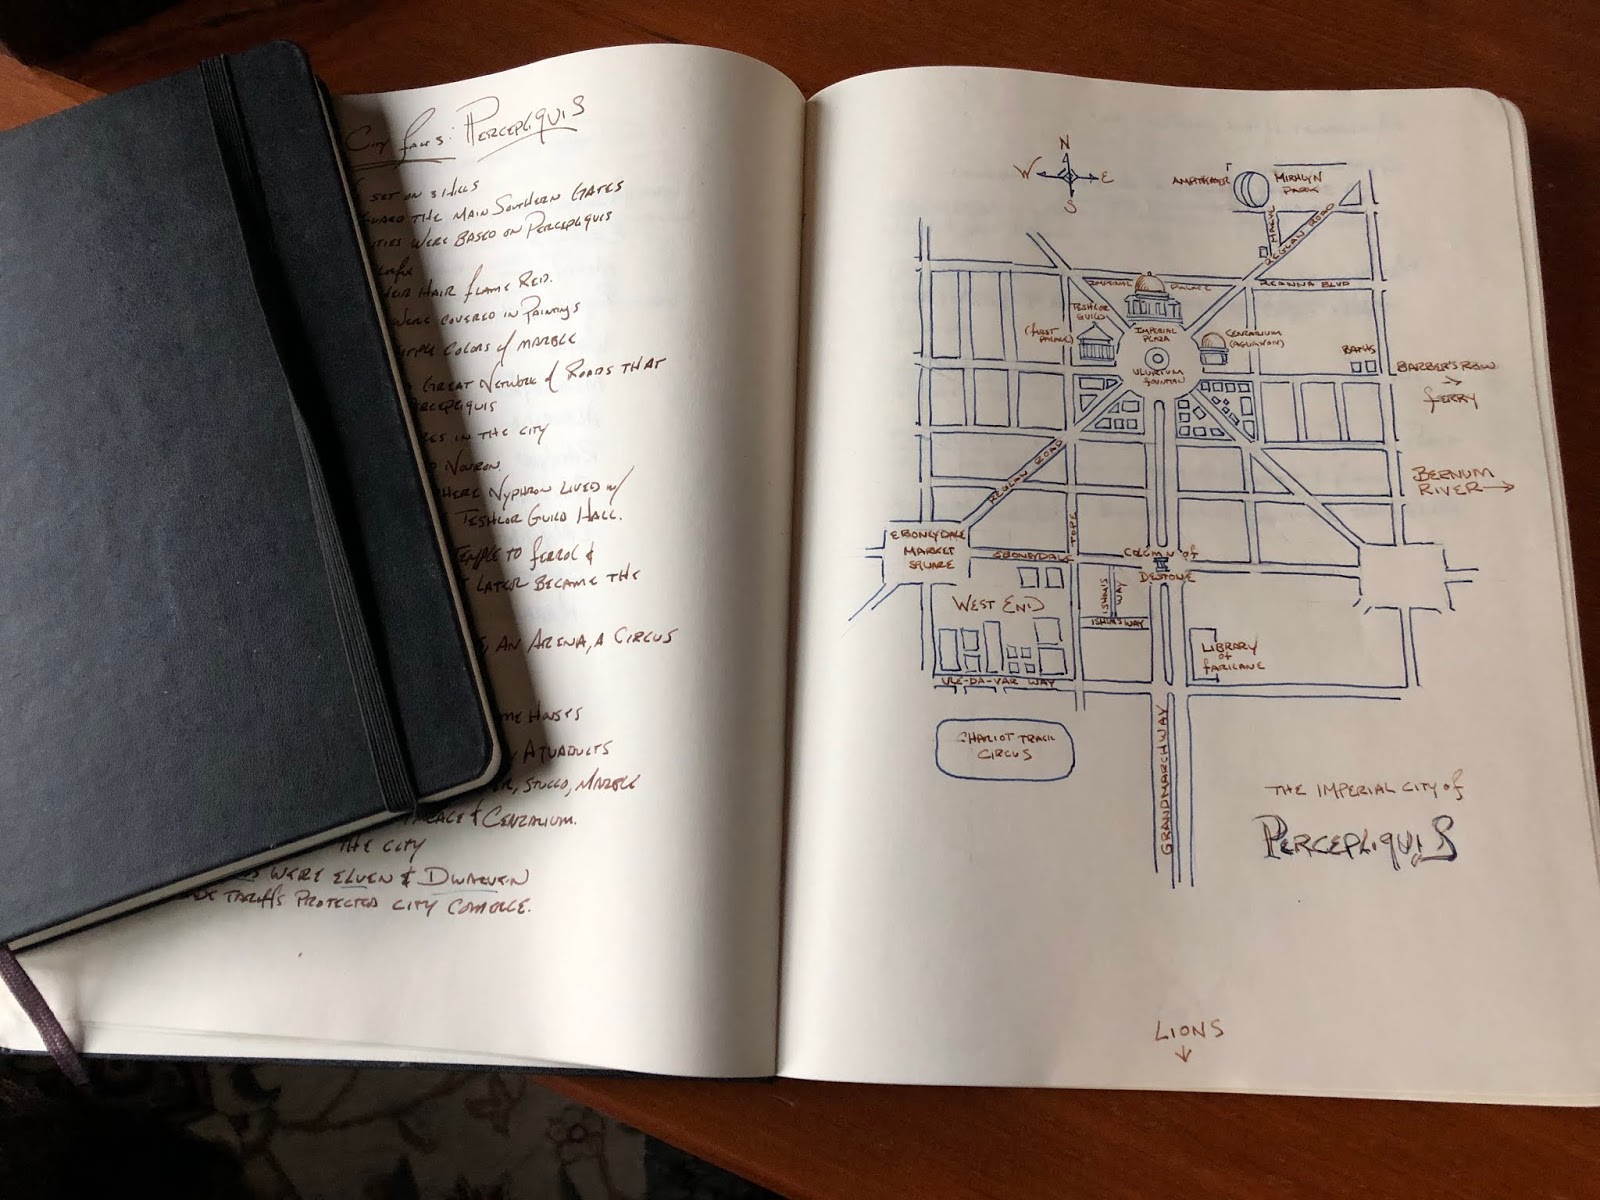 City facts: PERCEPLIQUIS
SET ON 3 HILLS
GUARD THE MAIN SOUTHERN GATES
CITIES WERE BASED ON PERCEPLIQUIS
THEIR HAIR FLAME RED.
WERE COVERED IN PAINTINGS
COLORS of MARBLE
GREAT NETWORK of ROADS THAT
PERCEPLIQUIS
IN THE CITY
NOVRON.
WHERE NYPHRON LIVED W/
TESHLOR GUILD HALL.
TEMPLE TO FERROL &
LATER BECAME THE
AN ARENA, A CIRCUS
STUCCO, MARBLE
& CENZARIUM.
THE CITY
WERE ELVEN & DWARVEN
TARIFFS PROTECTED CITY COMERCE.
N
W E
S
AMPITHEATER
MIRHLYN
PARK
REGLAN ROAD
IMPERIAL PALACE
REANNA BLVD
TESHLOR
GUILD
(FIRST
PALACE)
IMPERIAL
PLAZA
CENZARIUM
(AGUANON)
ULURIUM
FOUNTAIN
BATHS
BARBER'S ROW
FERRY
REGLAN ROAD
BERNUM
RIVER
EBONEYDALE
MARKET
SQUARE
EBONEYDALE
TOPE
COLUMN of
DESTONE
WEST END
ISHIM'S
WAY
ISHIM'S WAY
LIBRARY
of
FARILANE
VLE-DA-VAR WAY
CHARIOT TRACK
CIRCUS
GRANDMARCHWAY
THE IMPERIAL CITY of
PERCEPLIQUIS
LIONS